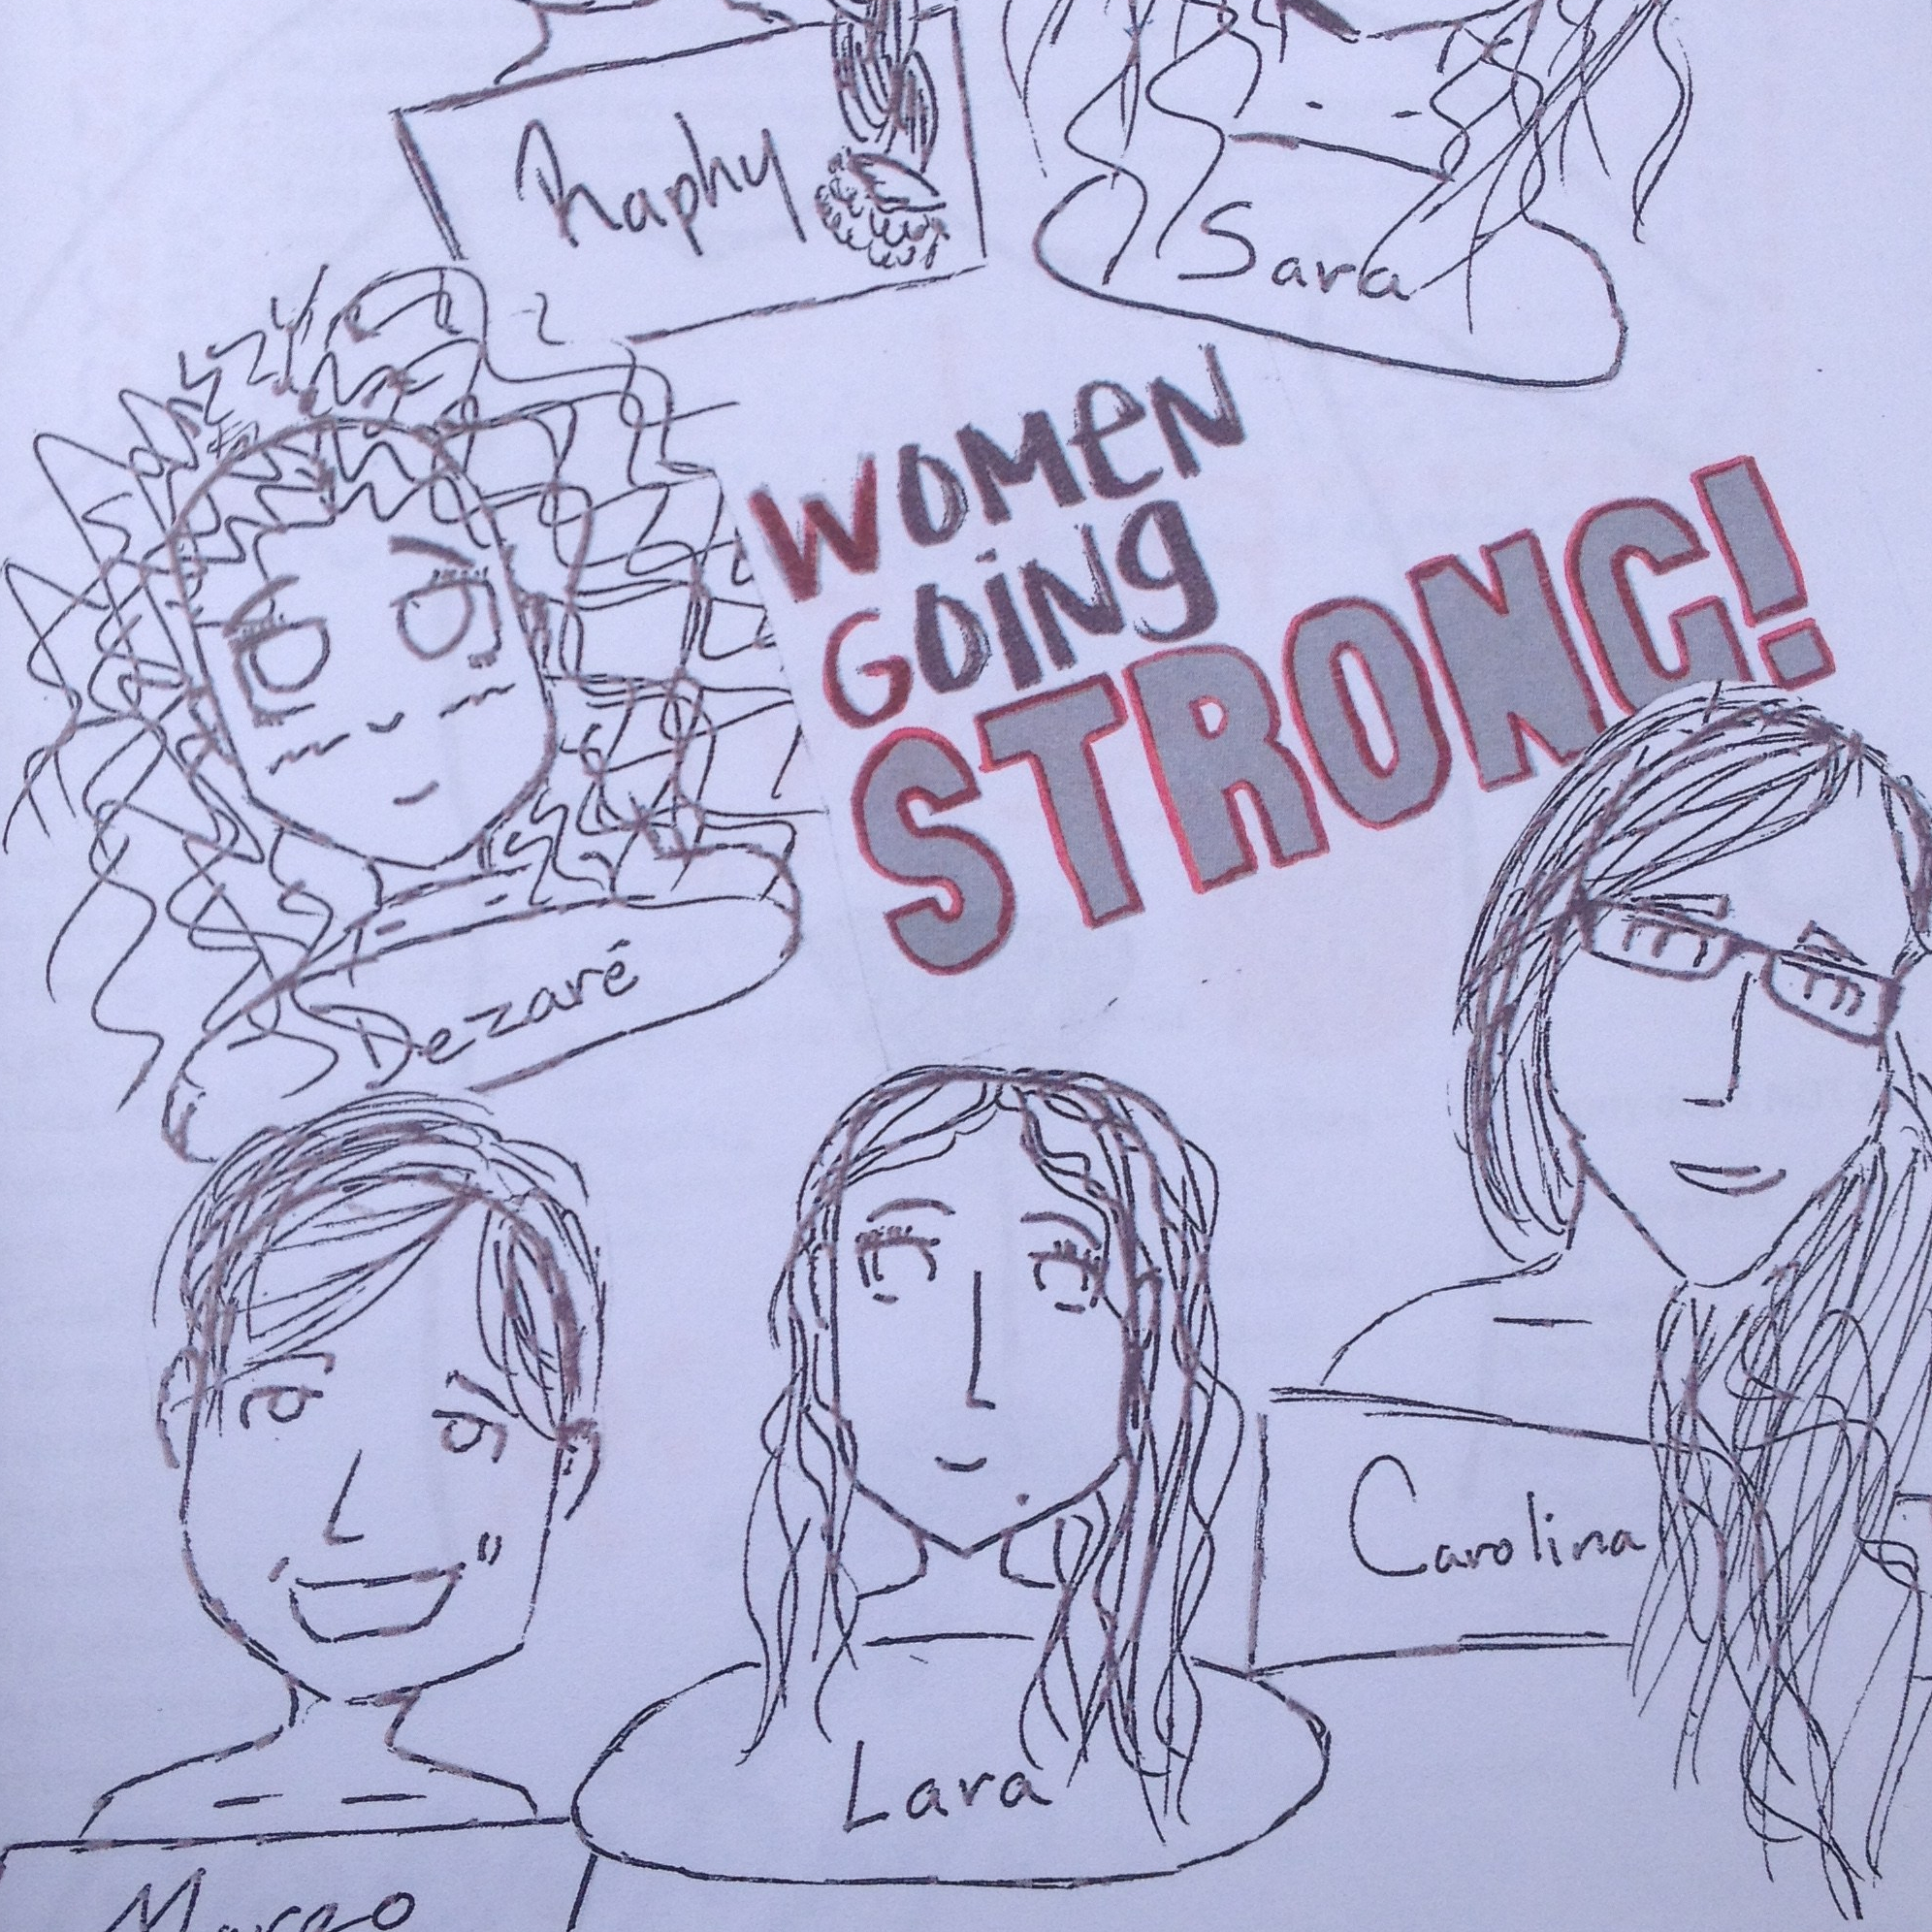 Raphy
Sara
WOMEN
GOING
STRONG!
Dezaré
Carolina
Lara
Margo